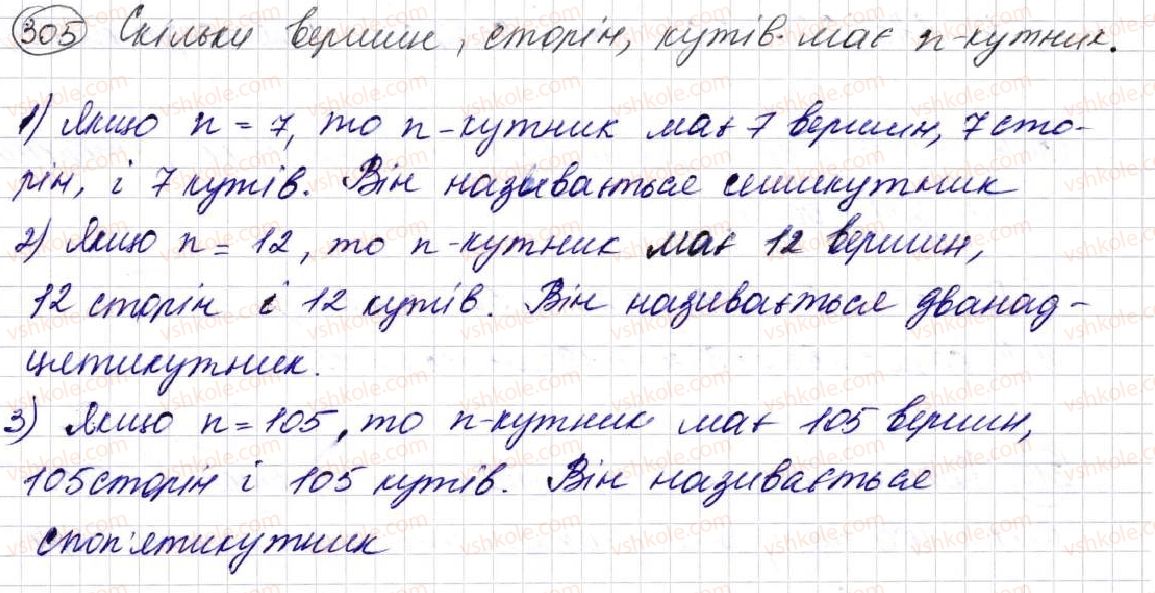 305 Скільки вершин, сторін, кутів має n-кутник.
1) Якщо n = 7, то n-кутник має 7 вершин, 7 сто-
рін, і 7 кутів. Він називається семикутник
2) Якщо n = 12, то n-кутник має 12 вершин,
12 сторін і 12 кутів. Він називається дванад-
цятикутник.
3) Якщо n = 105, то n-кутник має 105 вершин,
105 сторін і 105 кутів. Він називається
стоп'ятикутник